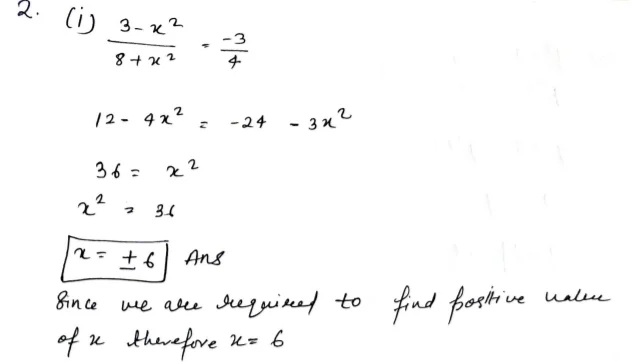 2. (i) 3 - x² / 8 + x² = -3 / 4
12 - 4x² = -24 - 3x²
36 = x²
x² = 36
x = ± 6 Ans
Since we are required to find positive value
of x therefore x = 6